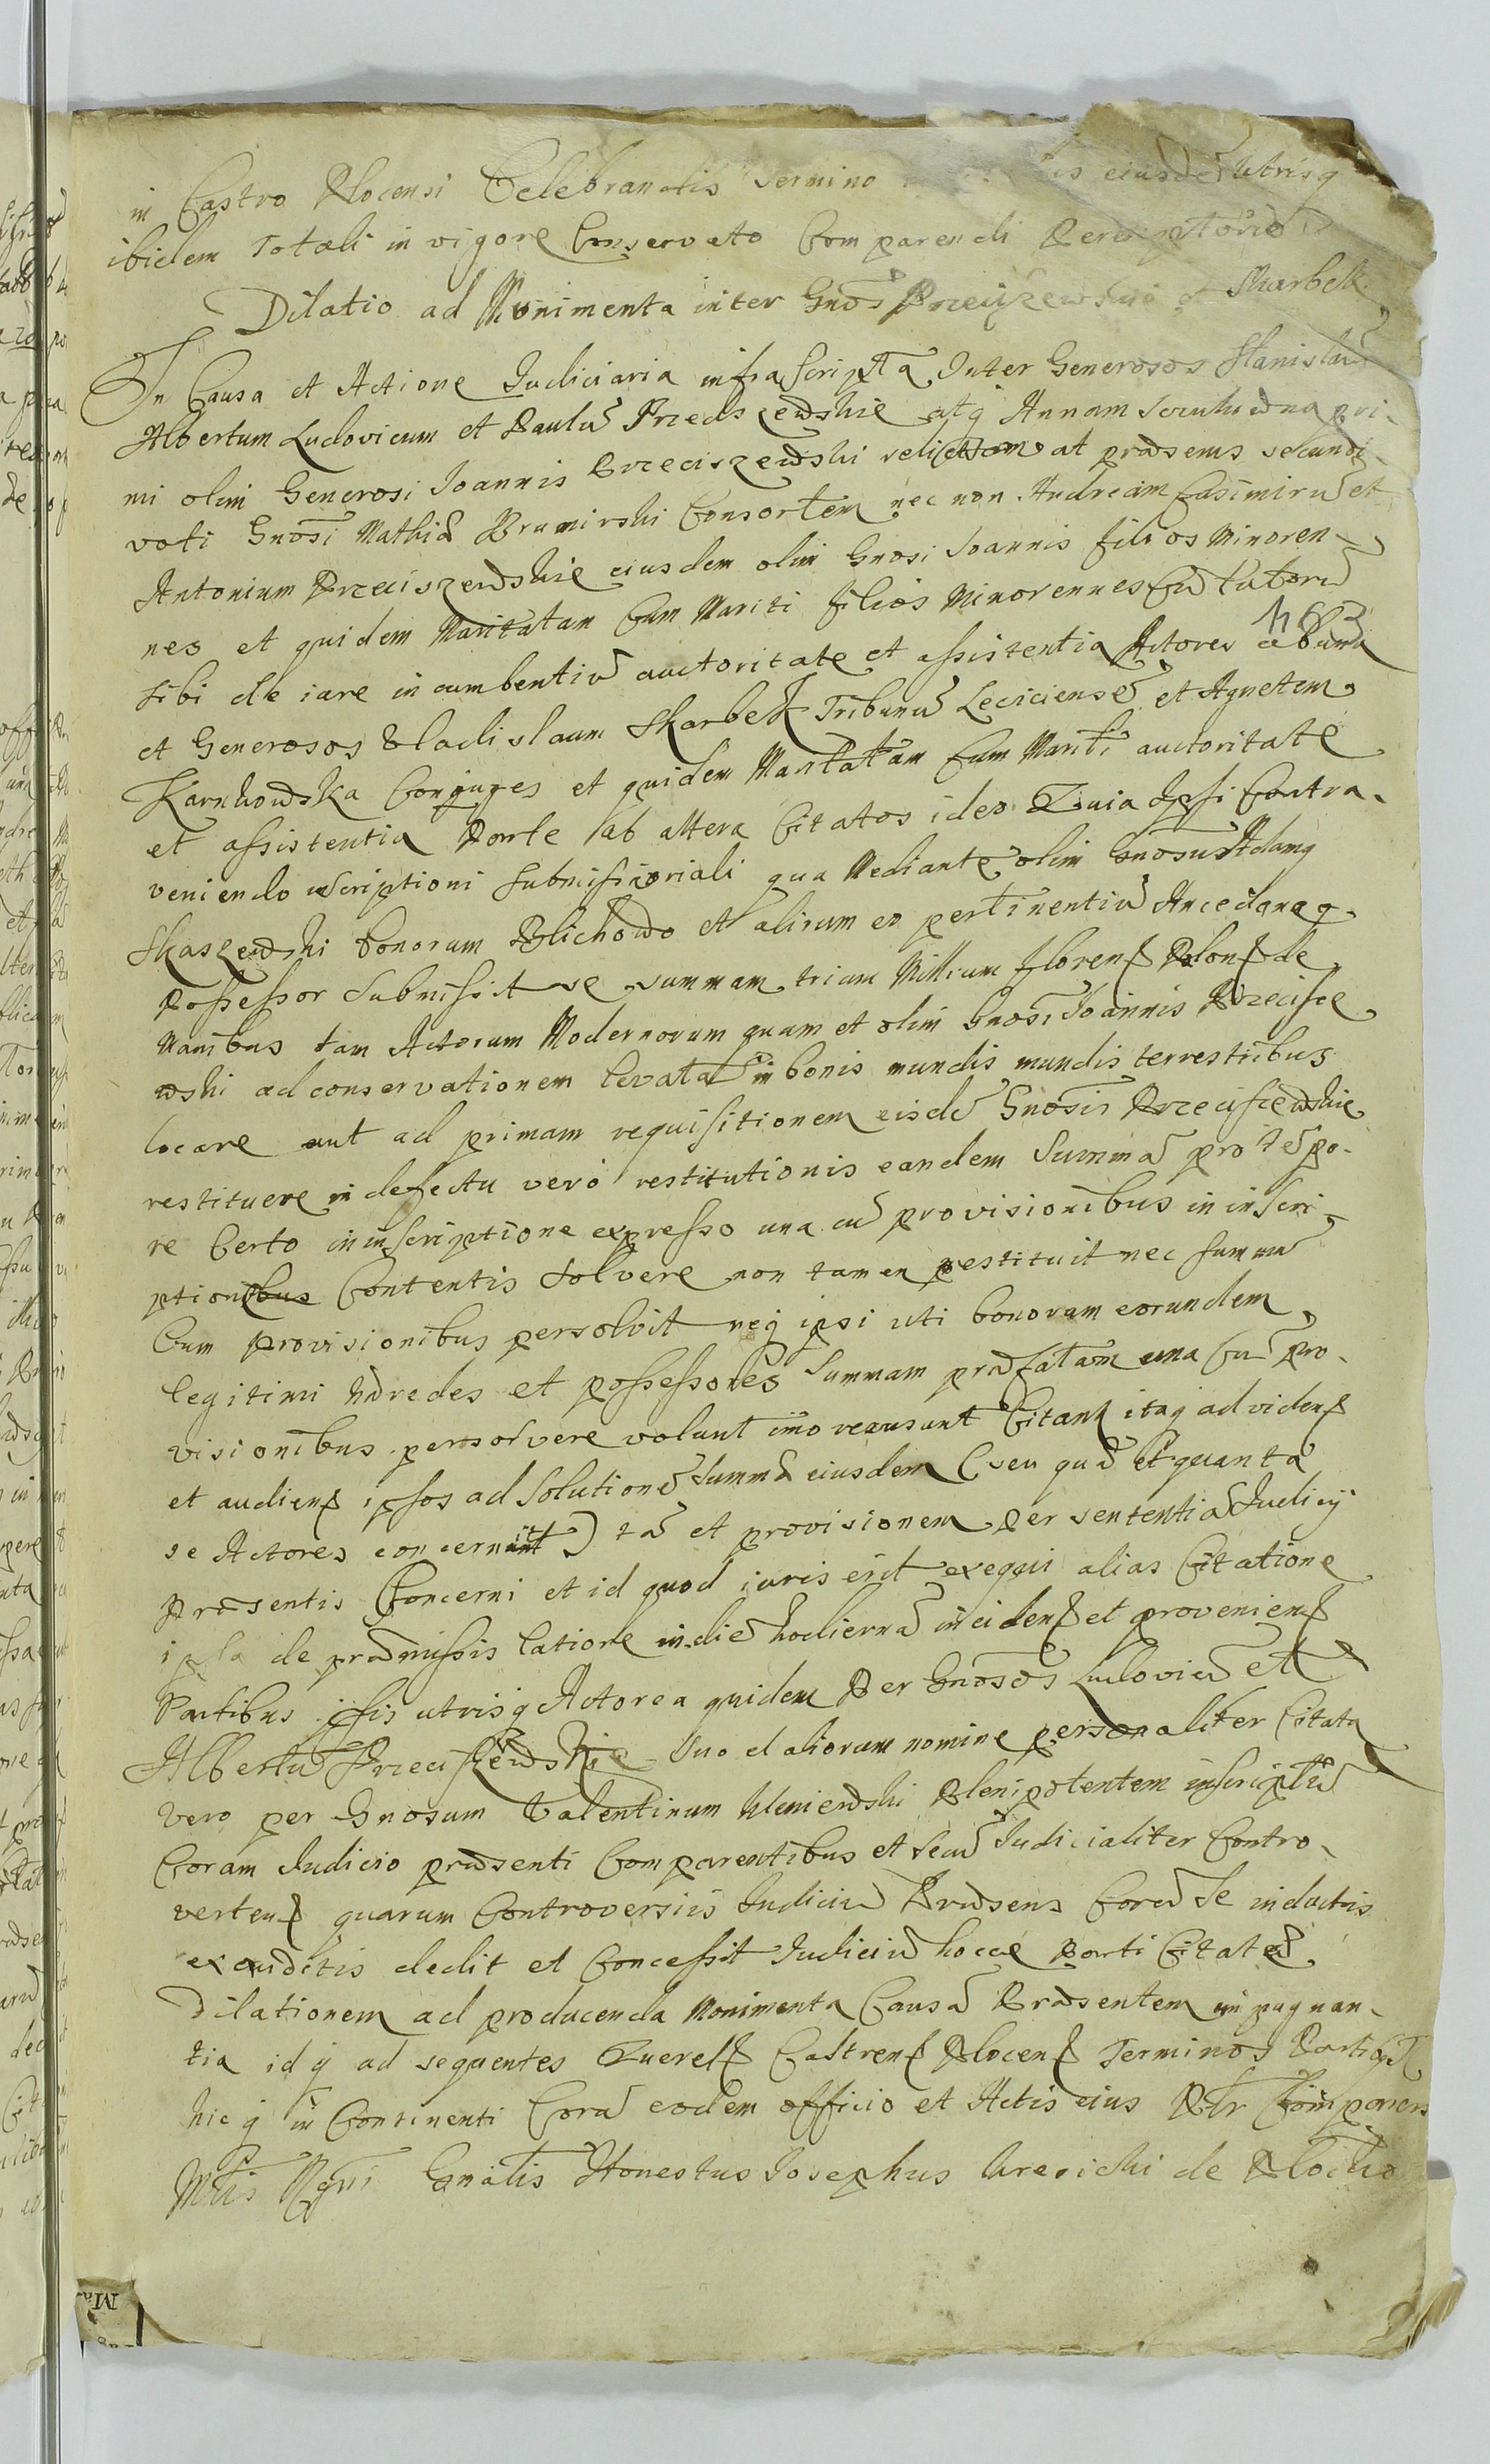 in Castro Plocensi Celebrandis Termino is eiusdē Utrisq
ibidem Totali in vigore Conservato Comparendi Peremptorio
Dilatio ad Munimenta inter Gnōs Przeciszewskie et Skarbek
In Causa et Actione Iudiciaria infrascripta Inter Generosos Stanislaū
Albertum Ludovicum et Paulū Przeciszewskie atq Annam pri-
mi olim Generosi Ioannis Przeciszewski relictam at præsens secundi
voti Gnōsi Mathiæ Bromirski Consortem nec non Andream Casimirū et
Antonium Przeciszewskie eiusdem olim Gnōsi Ioannis filios Minoren-
nes et quidem Maritatam Cum Mariti filios Minorennes Cū tutorū
sibi de iure incumbentiū auctoritate et assistentia Actores ab una
et Generosos Vladislaum Skarbek Tribunū Lęciciensē et Agnetem
Karnkowska Coniuges et quidem Maritatam Cum Mariti auctoritate
et assistentia Parte ab altera Citatos ideo Quia Ipsi Contra-
veniendo inscriptioni submissioriali qua Mediante olim Gnōsus Adamq
Skaszewski bonorum Blichowo et aliorum eo pertinentiū Ancedaneq
Possessor Submissit se summam trium Millium floren Polon de
Manibus tam Actorum Modernorum quam et olim Gnōsi Ioannis Przecisze
wski ad conservationem levatā in bonis mundis mundis terrestribus
locare aut ad primam requisitionem eisdē Gnōsis Przeciszewskie
restituere in defectu vero restitutionis eandem Summā pro tēpo-
re Certo in inscriptione expresso una cū provisionibus in inscri-
ptionibus Contentis Solvere non tamen restituit nec summā
Cum provisionibus persolvit neq ipsi uti bonorum eorundem
legitimi hæredes et possessores Summam præfatam una Cū pro-
visionibus persolvere volunt imo recusant Citant itaq ad viden
et audien ipsos ad Solutionē Summæ eiusdem (seu quā et quanta
se Actores concernit) tā et provisionem per sententiā Iudicij
Præsentis Concerni et id quod iuris erit exequi alias Citatione
ipsa de præmissis latiore in die hodierna inciden et provenien
Partibus ipsis utrisq Actorea quidem Per Gnōsos Ludovicū et
Albertū Przeciszewskie Suo et aliorum nomine personaliter Citata
vero per Gnosum Valentinum Kleniewski Plenipotentem inscriptū
Coram Iudicio præsenti Comparentibus et secū Iudicialiter Contro-
verten quarum Controversiis Iudiciū Præsens Corā Se inductis
exauditis dedit et Concessit Iudiciū hocce Parti Citatæ
Dilationem ad producenda Monimenta Causā Præsentem impugnan-
tia idq ad sequentes Querell Castren Plocen Terminos Partiq
hicq in Continenti Corā eodem officio et Actis eius Plr Comparen
Mtis Rgni Gnālis Honestus Iosephus de Plocko